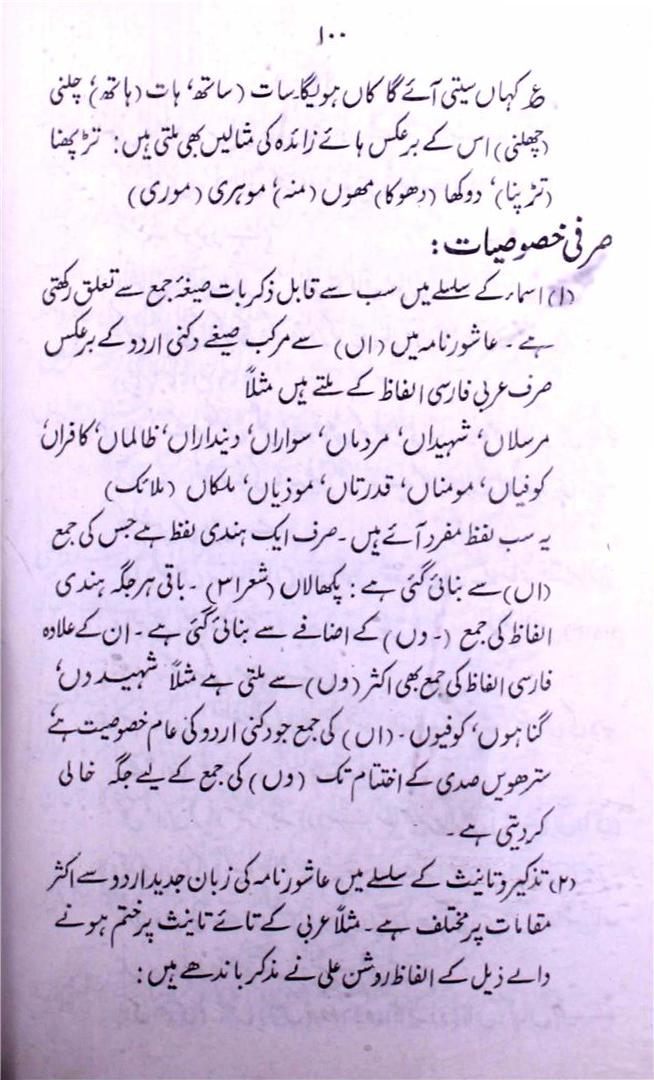 ۱۰۰
ع کہاں سیتی آئے گا کاں ہولیگا۔سات (ساتھ)، ہات (ہاتھ)، چلنی
(چھلنی) اس کے برعکس ہائے زائدہ کی مثالیں بھی ملتی ہیں: تڑپھنا
(تڑپنا)، دوکھا (دھوکا) مھوں (منہ)، موہری (موری)
صرفی خصوصیات:
(۱) اسماء کے سلسلے میں سب سے قابل ذکر بات صیغۂ جمع سے تعلق رکھتی
ہے۔ عاشورنامہ میں (اں) سے مرکب صیغے دکنی اردو کے برعکس
صرف عربی فارسی الفاظ کے ملتے ہیں مثلاً
مرسلاں، شہیداں، مردماں، سواراں، دینداراں، ظالماں، کافراں،
کوفیاں، مومناں، قدرتاں، موذیاں، ملکاں (ملائک)
یہ سب لفظ مفرد آئے ہیں۔ صرف ایک ہندی لفظ ہے جس کی جمع
(اں) سے بنائی گئی ہے: پکھالاں (شعر ۳۱)۔ باقی ہر جگہ ہندی
الفاظ کی جمع (۔وں) کے اضافے سے بنائی گئی ہے۔ ان کے علاوہ
فارسی الفاظ کی جمع بھی اکثر (وں) سے ملتی ہے مثلاً شہیدوں،
گناہوں، کوفیوں۔ (اں) کی جمع جو دکنی اردو کی عام خصوصیت ہے،
سترھویں صدی کے اختتام تک (وں) کی جمع کے لیے جگہ خالی
کردیتی ہے۔
(۲) تذکیر و تانیث کے سلسلے میں عاشورنامہ کی زبان جدید اردو سے اکثر
مقامات پر مختلف ہے۔ مثلاً عربی کے تائے تانیث پر ختم ہونے
والے ذیل کے الفاظ روشن علی نے مذکر باندھے ہیں: